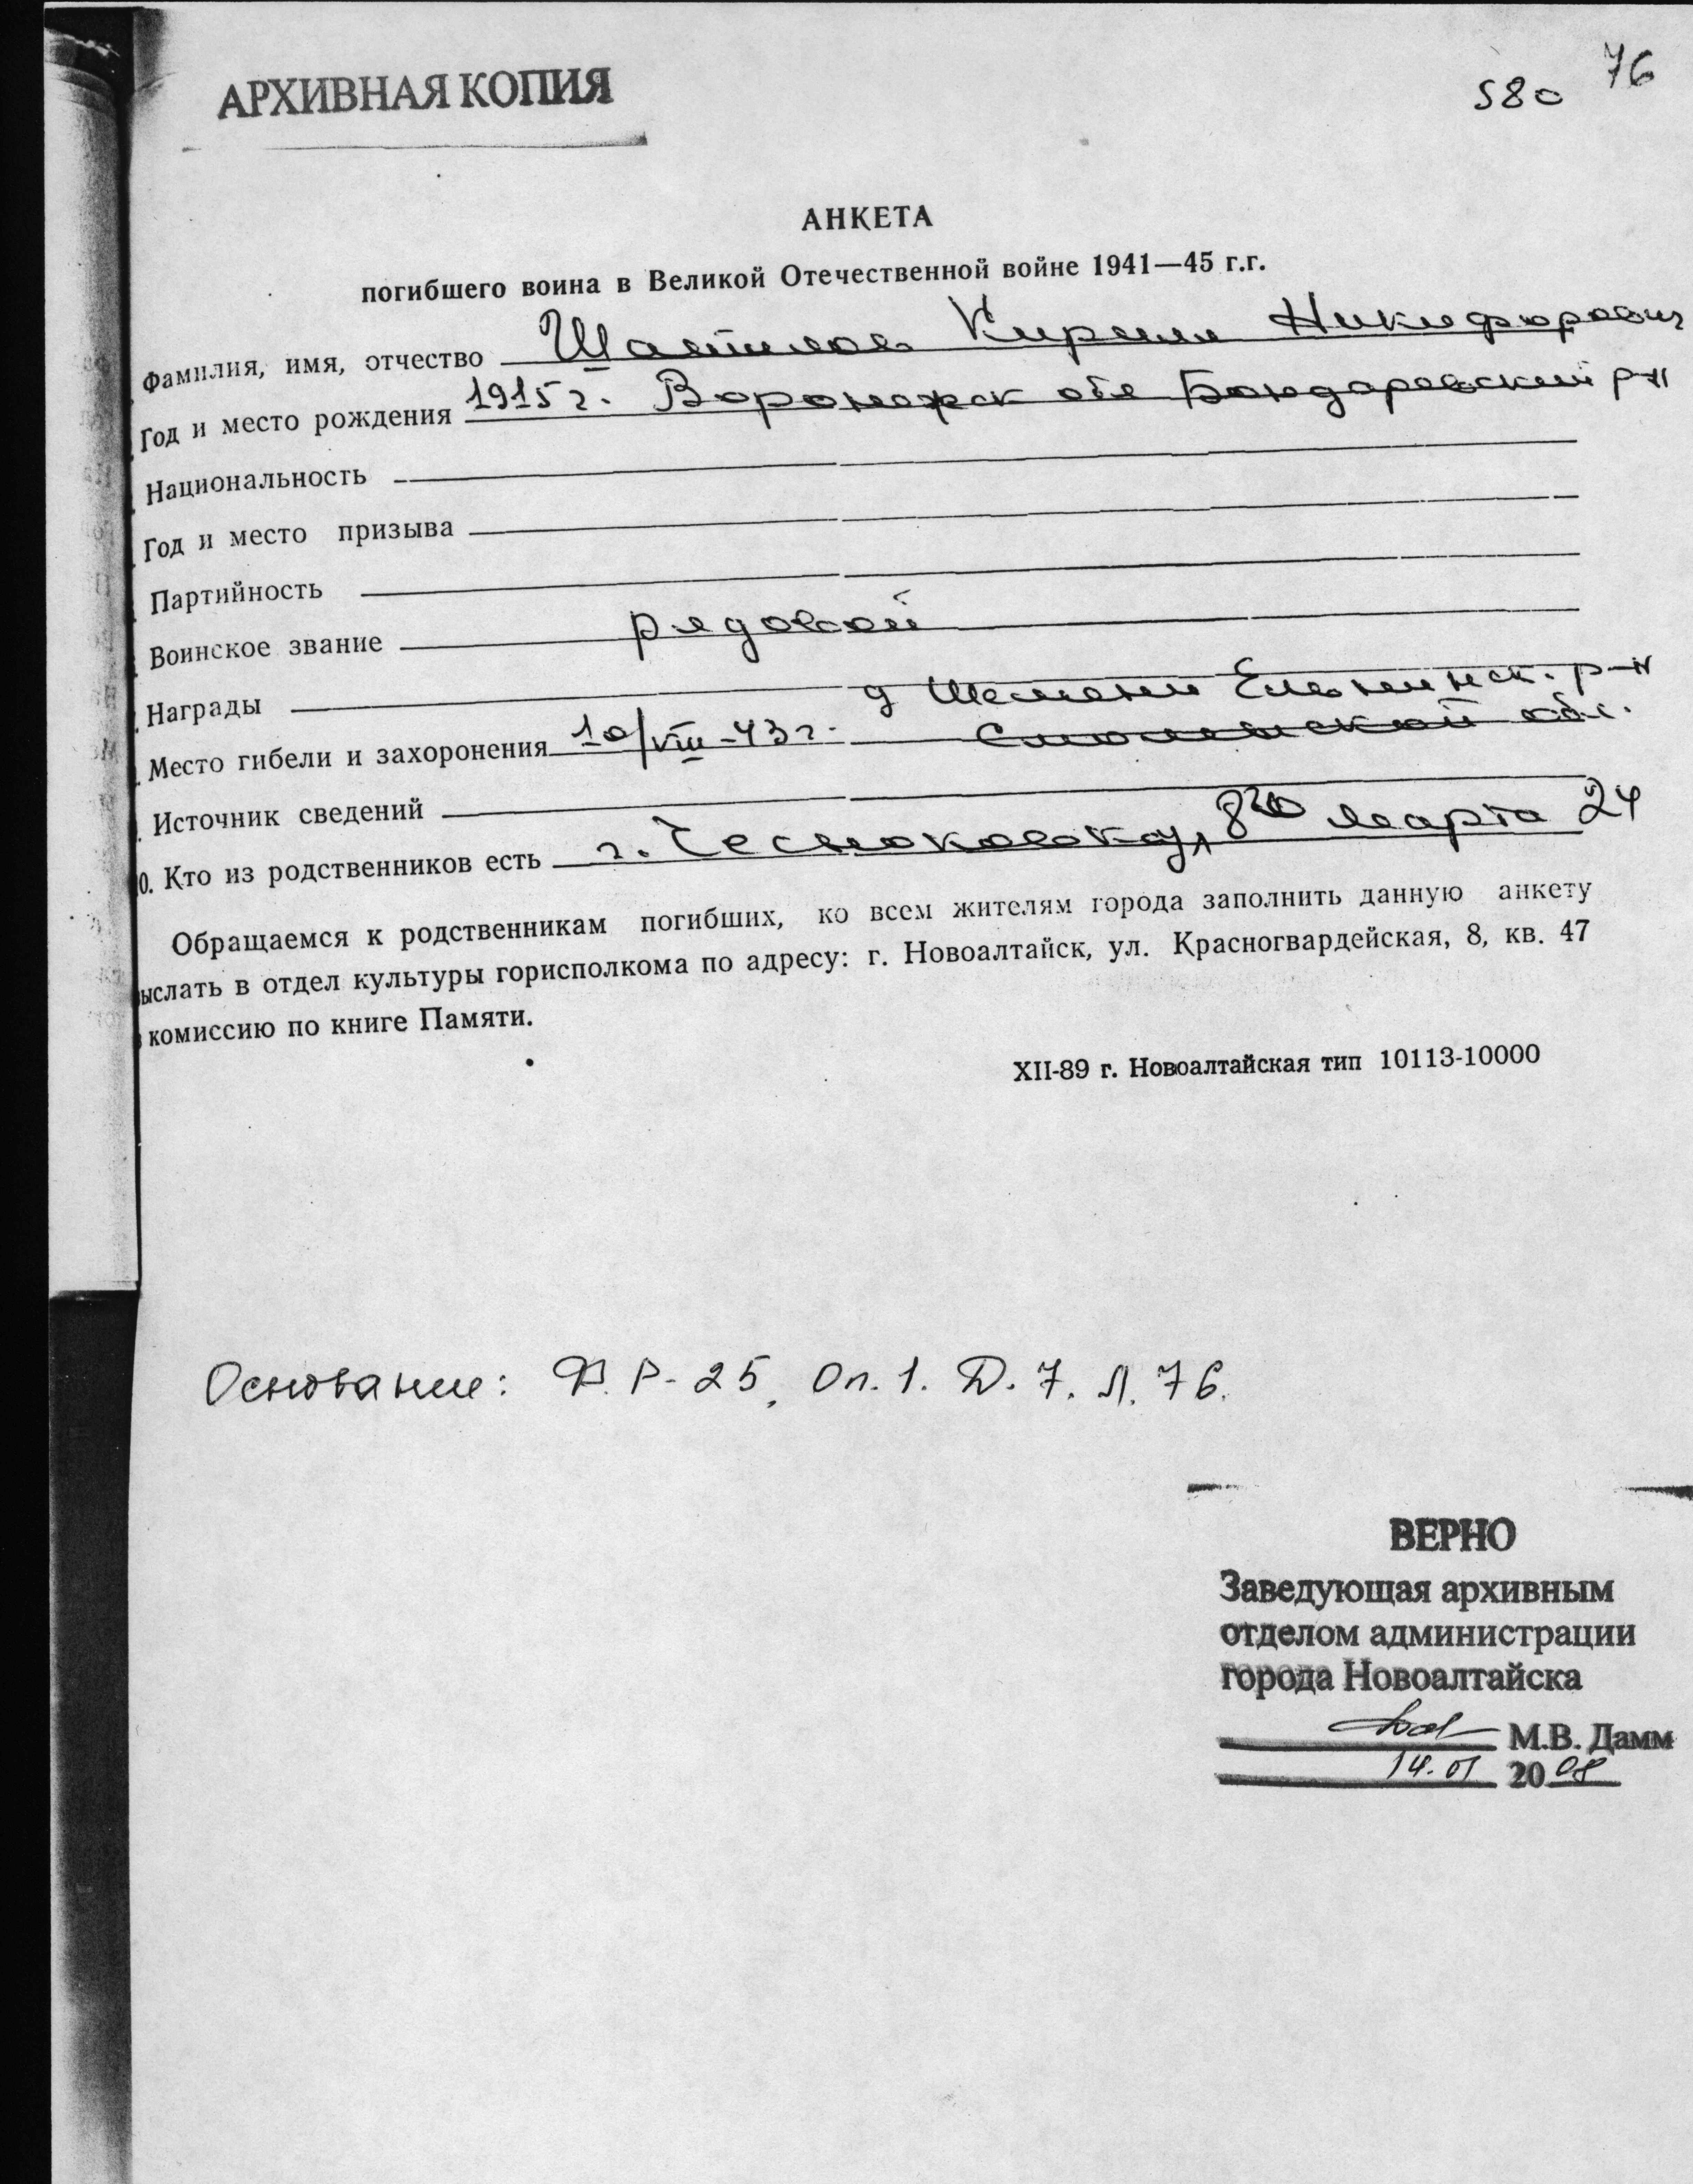 АРХИВНАЯ КОПИЯ
580 76
АНКЕТА
погибшего воина в Великой Отечественной войне 1941—45 г.г.
Фамилия, имя, отчество Шатилов Кирилл Никифорович
Год и место рождения 1915 г. Воронежск обл Бондаревский р-н
Национальность
Год и место призыва
Партийность
Воинское звание рядовой
Награды
д Шемени Ельнинск. р-н
Место гибели и захоронения 10/VIII-43 г. Смоленской обл.
Источник сведений
0. Кто из родственников есть г. Чесноковка ул 8го марта 24
Обращаемся к родственникам погибших, ко всем жителям города заполнить данную анкету
ыслать в отдел культуры горисполкома по адресу: г. Новоалтайск, ул. Красногвардейская, 8, кв. 47
комиссию по книге Памяти.
XII-89 г. Новоалтайская тип 10113-10000
Основание: Ф. Р-25, Оп. 1. Д. 7. Л. 76.
ВЕРНО
Заведующая архивным
отделом администрации
города Новоалтайска
М.В. Дамм
14.01 2008